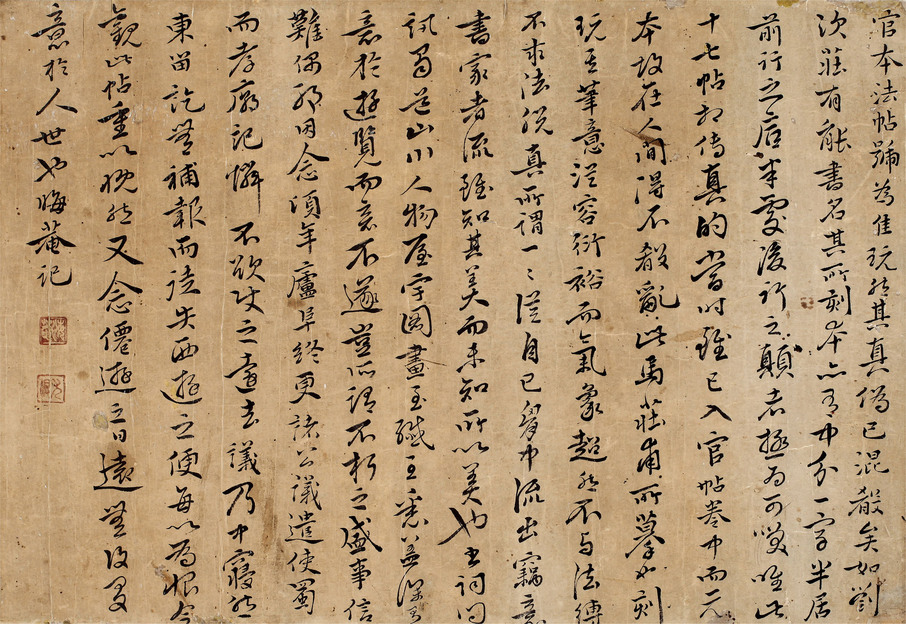 官本法帖號為佳玩然其真偽已混殽矣如劉
次莊有能書名其所刻本亦有中分一字半居
前行之底半處後行之顛者極為可笑唯此
十七帖相傳真的當時雖已入官帖卷中而元
本故在人間得不殽亂此馬莊甫所摹刻
玩其筆意從容衍裕而氣象超然不與法縛
不求法脫真所謂一〻從自己胸中流出竊意
書家者流雖知其美而未知所以美也書詞問
訊蜀道山川人物屋宇圖畫至纖至悉蓋深有
意於遊覽而竟不遂豈所謂不朽之盛事信
難偶邪因念頃年廬阜終更諸公議遣使蜀
而孝廟記憐不欲之遠去議乃中寢然
東留訖無補報而徒失西遊之便每以為恨今
觀此帖重以慨然又念僊遊之日遠無復
意於人世也晦菴記